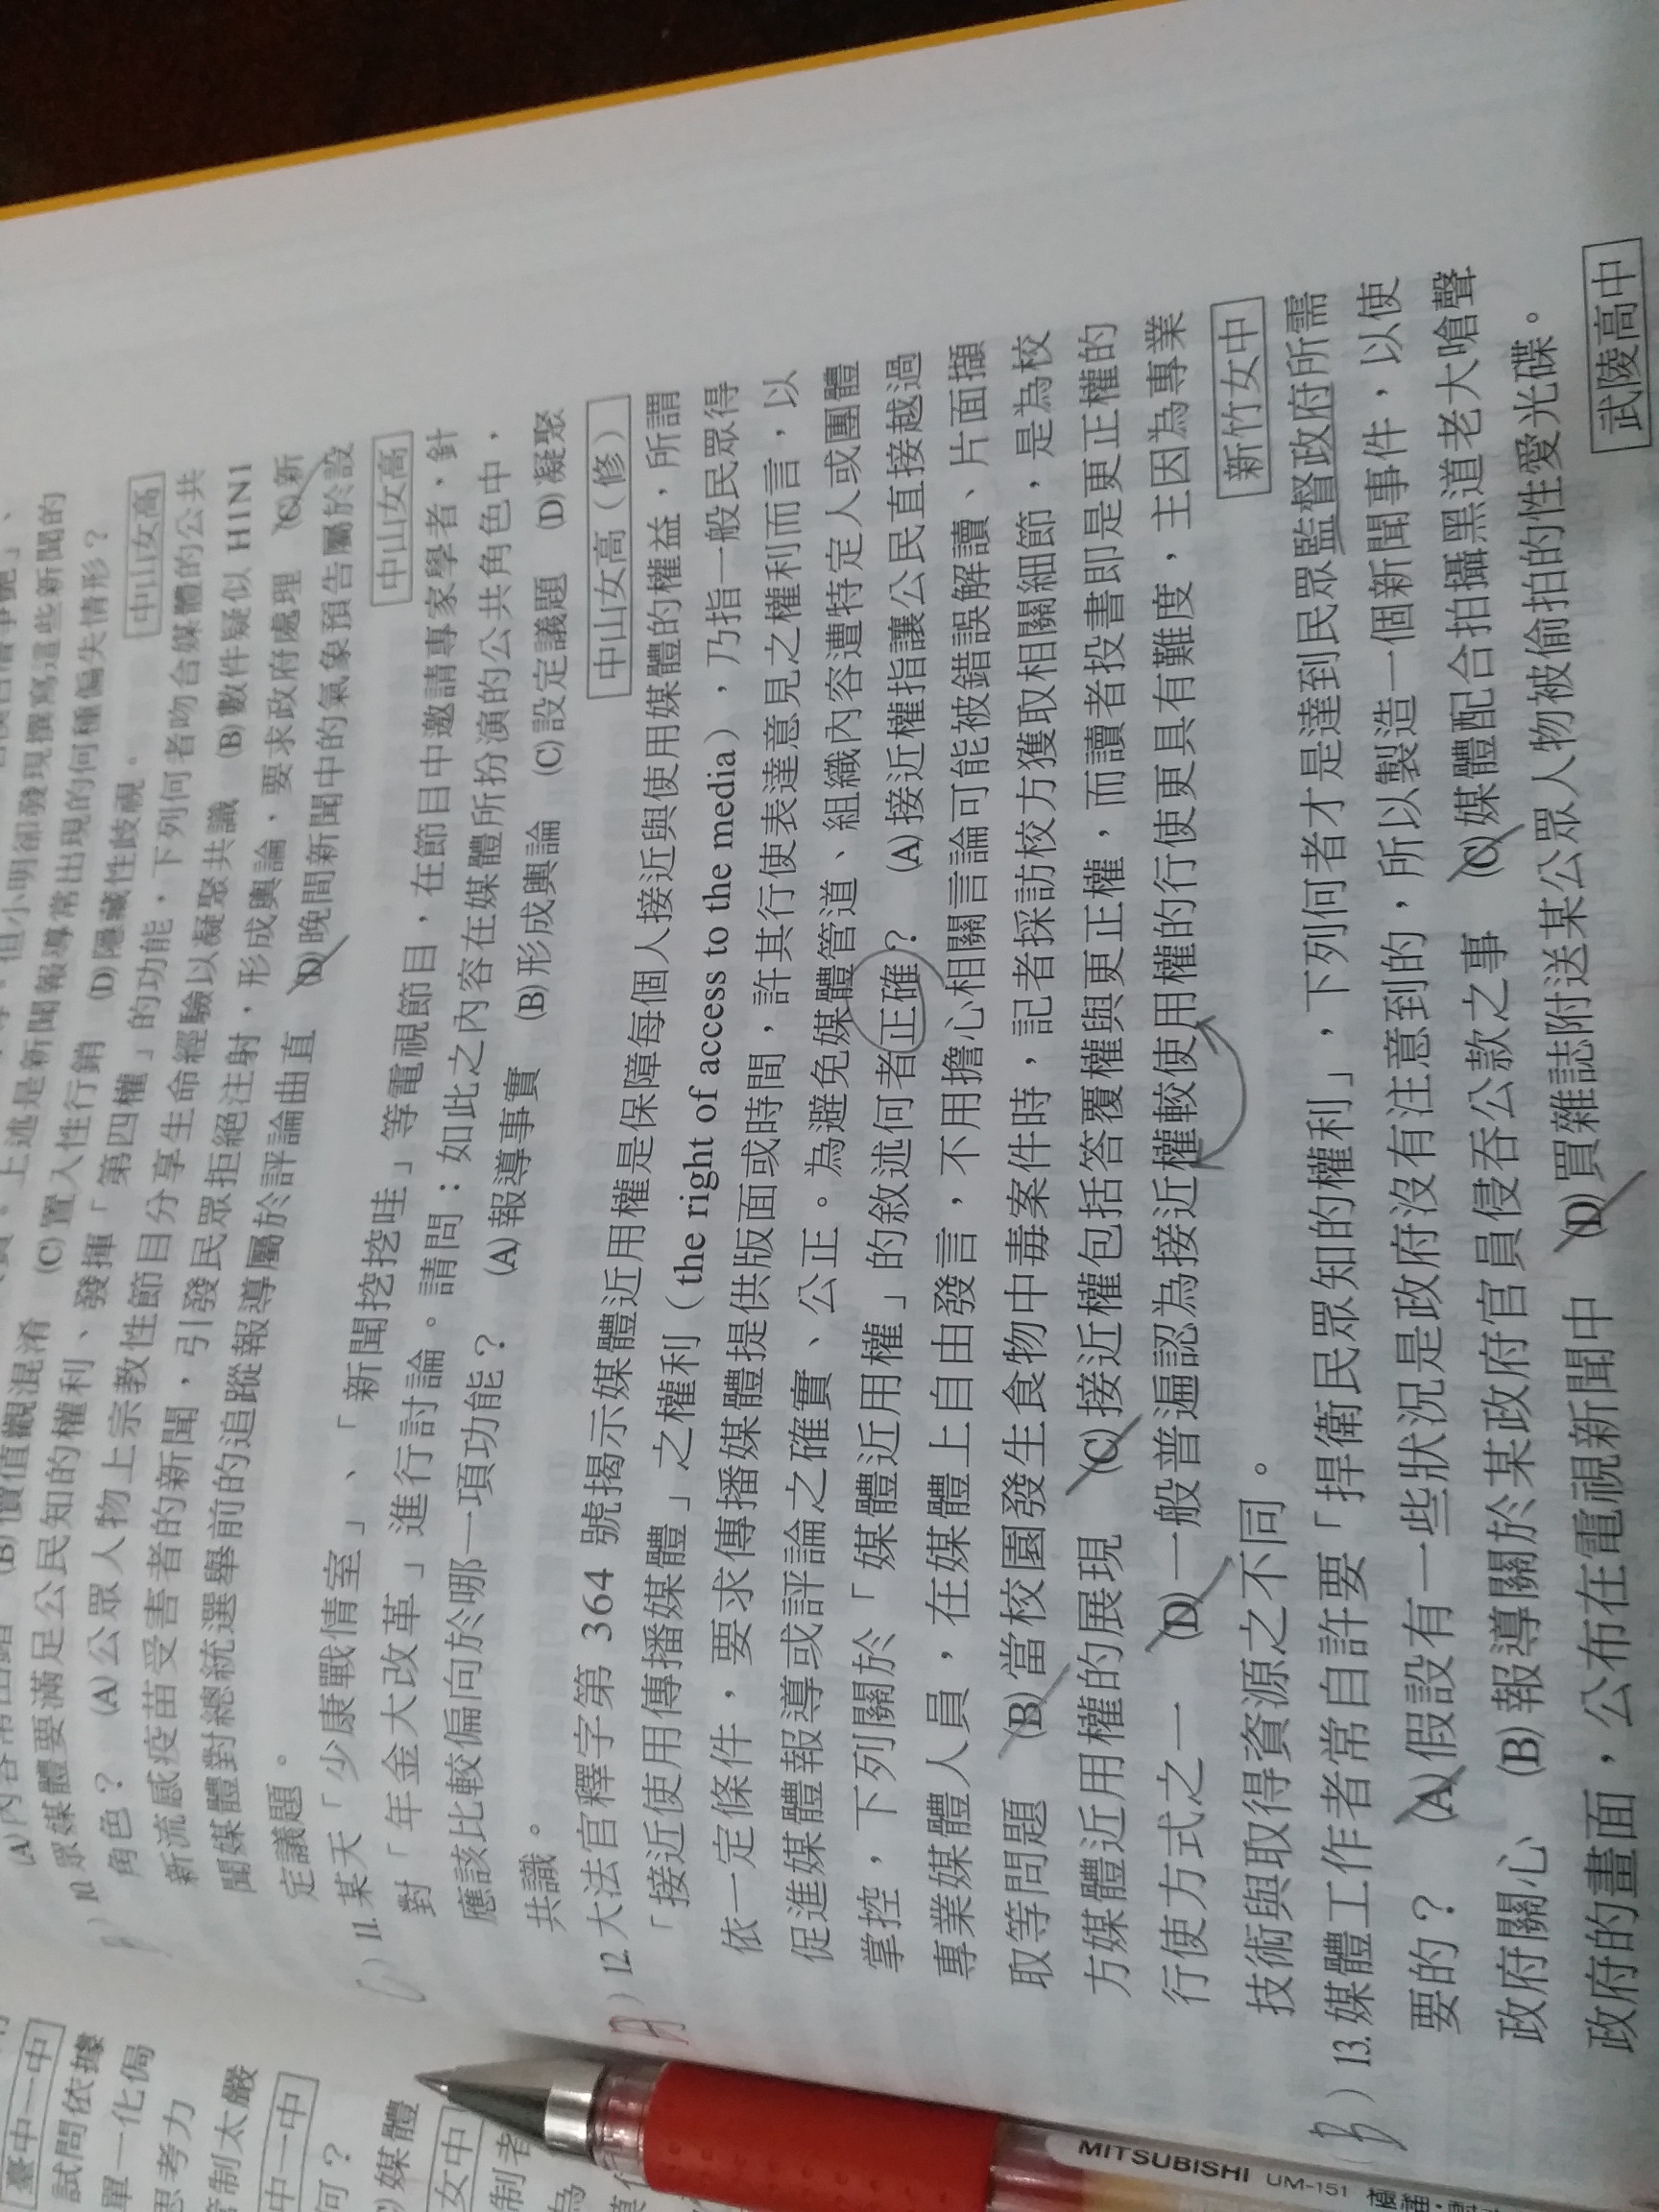 (A)內容常出錯 (B)價值觀混淆 (C)置入性行銷 (D)隱藏性歧視。
中山女高
B ) 10. 眾媒體要滿足公民知的權利、發揮「第四權」的功能，下列何者吻合媒體的公共
角色？ (A)公眾人物上宗教性節目分享生命經驗以凝聚共識 (B)數件疑似 H1N1
新流感疫苗受害者的新聞，引發民眾拒絕注射，形成輿論，要求政府處理 (C)新
聞媒體對總統選舉前的追蹤報導屬於評論曲直 (D)晚間新聞中的氣象預告屬於設
定議題。
中山女高
C ) 11. 某天「少康戰情室」、「新聞挖挖哇」等電視節目，在節目中邀請專家學者，針
對「年金大改革」進行討論。請問：如此之內容在媒體所扮演的公共角色中，
應該比較偏向於哪一項功能？ (A)報導事實 (B)形成輿論 (C)設定議題 (D)凝聚
共識。
中山女高（修）
A ) 12. 大法官釋字第 364 號揭示媒體近用權是保障每個人接近與使用媒體的權益，所謂
「接近使用傳播媒體」之權利（the right of access to the media），乃指一般民眾得
依一定條件，要求傳播媒體提供版面或時間，許其行使表達意見之權利而言，以
促進媒體報導或評論之確實、公正。為避免媒體管道、組織內容遭特定人或團體
掌控，下列關於「媒體近用權」的敘述何者正確？ (A)接近權指讓公民直接越過
專業媒體人員，在媒體上自由發言，不用擔心相關言論可能被錯誤解讀、片面擷
取等問題 (B)當校園發生食物中毒案件時，記者採訪校方獲取相關細節，是為校
方媒體近用權的展現 (C)接近權包括答覆權與更正權，而讀者投書即是更正權的
行使方式之一 (D)一般普遍認為接近權較使用權的行使更具有難度，主因為專業
技術與取得資源之不同。
新竹女中
B ) 13. 媒體工作者常自許要「捍衛民眾知的權利」，下列何者才是達到民眾監督政府所需
要的？ (A)假設有一些狀況是政府沒有注意到的，所以製造一個新聞事件，以使
政府關心 (B)報導關於某政府官員侵吞公款之事 (C)媒體配合拍攝黑道老大嗆聲
政府的畫面，公布在電視新聞中 (D)買雜誌附送某公眾人物被偷拍的性愛光碟。
武陵高中
臺中一中
試問依據
單一化侷
思考力
管制太嚴
中一中
何？
媒體
女中
制者
MITSUBISHI UM-151